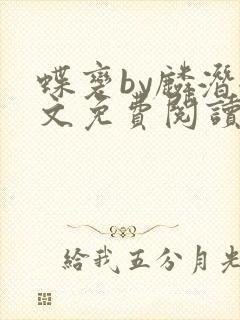 蝶变by麟潜
文免費閱讀
給我五分月光